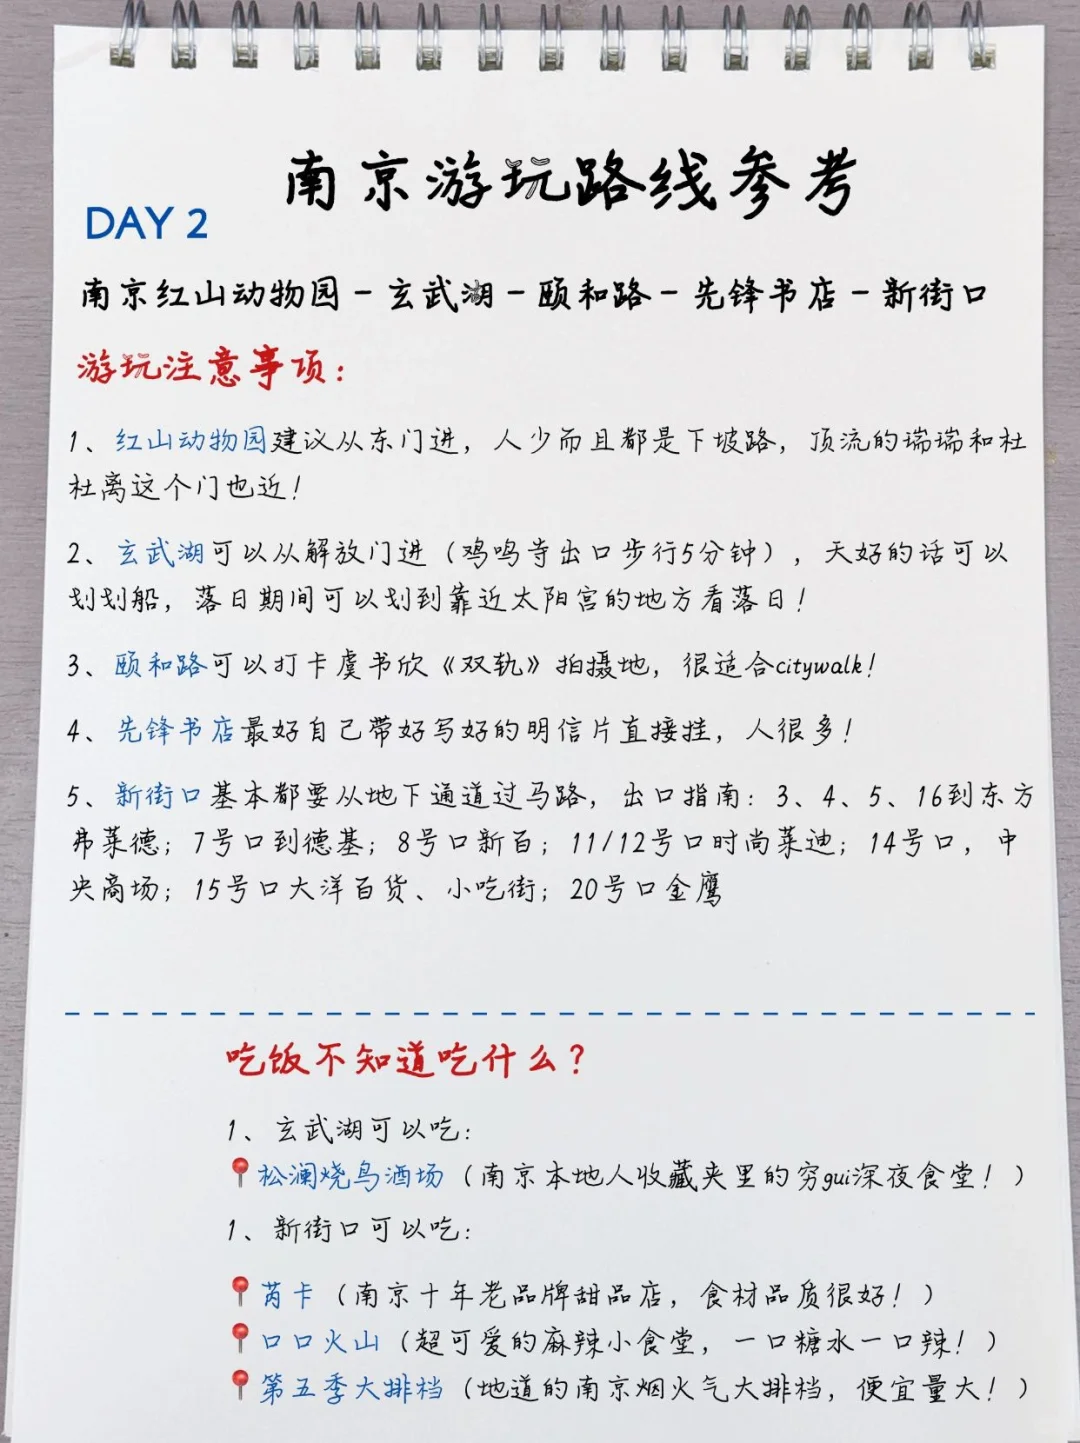 南京游玩路线参考
DAY 2
南京红山动物园-玄武湖-颐和路-先锋书店-新街口
游玩注意事项：
1、红山动物园建议从东门进，人少而且都是下坡路，顶流的端端和杜
杜离这个门也近！
2、玄武湖可以从解放门进（鸡鸣寺出口步行5分钟），天好的话可以
划划船，落日期间可以划到靠近太阳宫的地方看落日！
3、颐和路可以打卡虞书欣《双轨》拍摄地，很适合citywalk！
4、先锋书店最好自己带好写好的明信片直接挂，人很多！
5、新街口基本都要从地下通道过马路，出口指南：3、4、5、16到东方
弗莱德；7号口到德基；8号口新百；11/12号口时尚莱迪；14号口，中
央商场；15号口大洋百货、小吃街；20号口金鹰
吃饭不知道吃什么？
1、玄武湖可以吃：
📍松澜烧鸟酒场（南京本地人收藏夹里的穷gui深夜食堂！）
1、新街口可以吃：
📍芮卡（南京十年老品牌甜品店，食材品质很好！）
📍口口火山（超可爱的麻辣小食堂，一口糖水一口辣！）
📍第五季大排档（地道的南京烟火气大排档，便宜量大！）